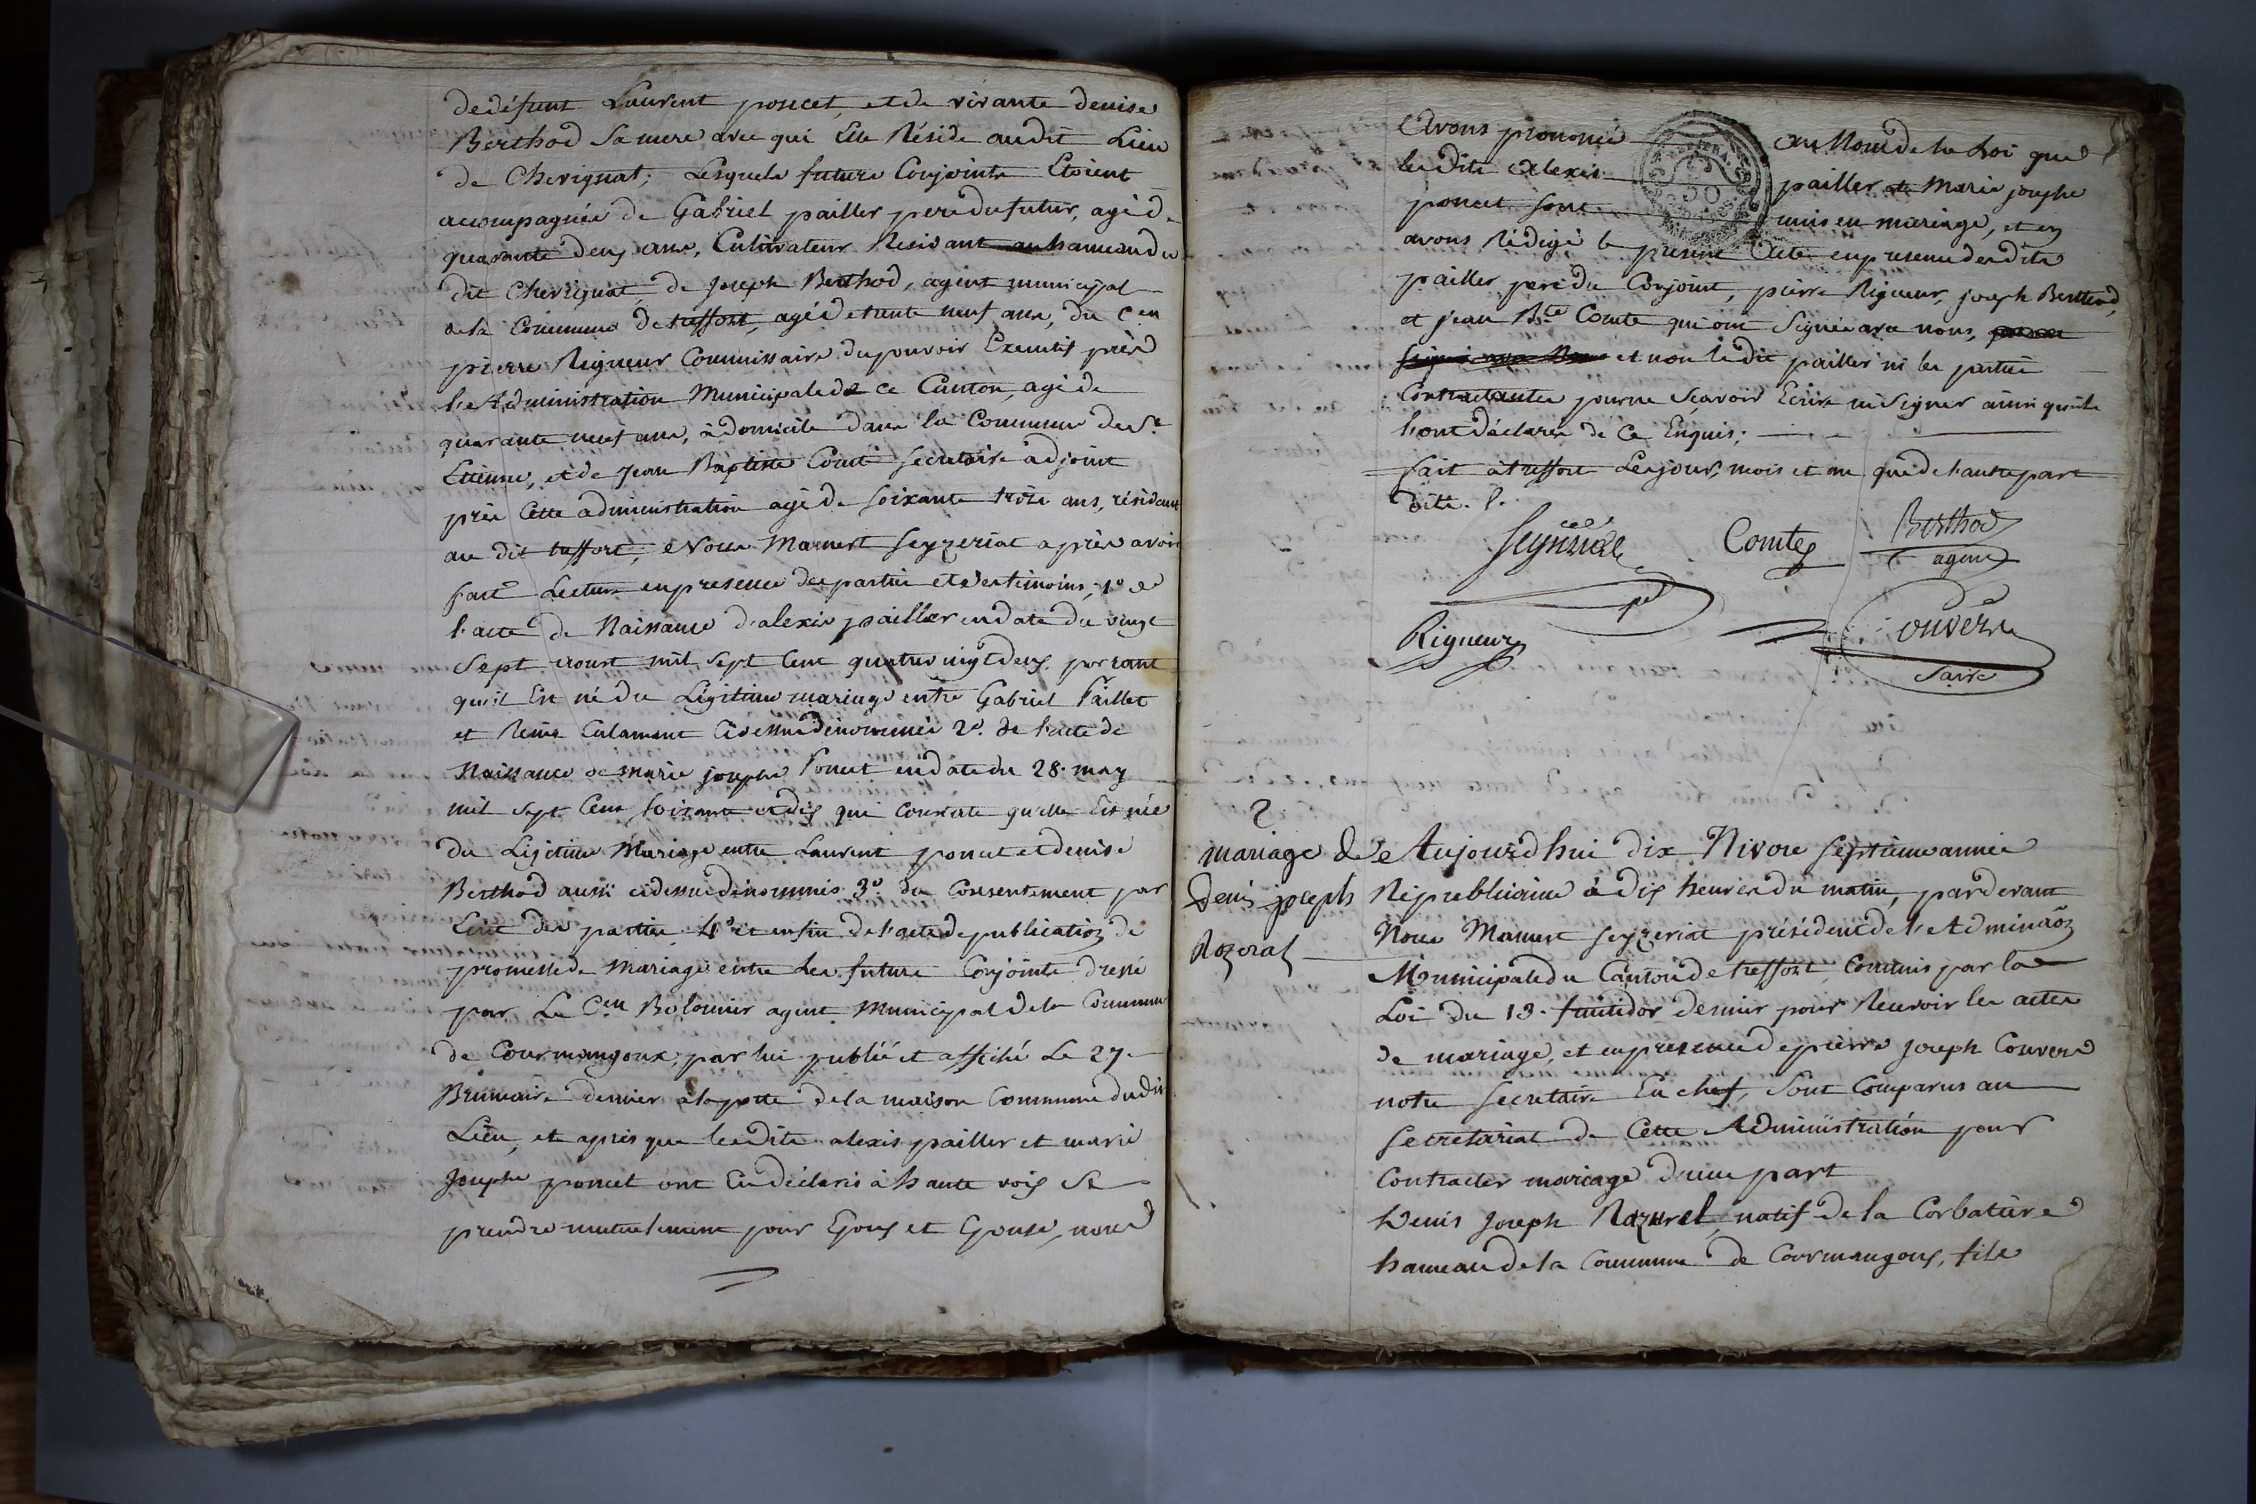 de défunt Laurent poncet, et de vivante denise
Berthod Sa mere avec qui Elle Réside audit Lieu
de Chevignat; Lesquels futurs Conjoints Etoient
accompagnés de Gabriel pailler pere du futur, agé de
quarante deux ans, Cultivateur Residant au hameau du
dit Chevignat, de Joseph Berthod, agent municipal
de la Commune de treffort, agé de trente neuf ans, du Cen
pierre Rigueur Commissaire du pouvoir Executif près
l'Administration Municipale de ce Canton, agé de
quarante neuf ans, à domicile dans la Commune de St
Etienne, et de Jean Baptiste Comte secretaire adjoint
près Cette administration agé de soixante trois ans, résidant
au dit treffort, Nous Mamert seyzeriat après avoir
fait Lecture en presence des parties et des temoins, 1º de
l'acte de Naissance d'alexis pailler en date du vingt
Sept aoust mil sept Cent quatre vingt deux portant
qu'il Est né du Légitime mariage entre Gabriel Paillet
et Reine Calamant Ci dessus dénommés 2º. de l'acte de
Naissance de marie josephe Poncet en date du 28. may
mil sept Cent soixante et dix qui Constate qu'elle Est née
du Légitime Mariage entre Laurent poncet et denise
Berthod aussi ci dessus dénommés 3º. du Consentement par
Ecrit des parties 4º et enfin de l'acte de publication de
promesse de Mariage entre Les futurs Conjoints dressé
par Le Cen Bolomier agent Municipal de la Commune
de Courmangoux, par lui publié et affiché Le 27
Brumaire dernier à la porte de la maison Commune dudit
Lieu, et après que lesdits alexis pailler et marie
Josephe poncet ont Eu déclaré à haute voix se
prendre mutuelement pour Epoux et Epouse, nous
Avons prononcé au Nom de la Loi que
lesdits Alexis pailler et Marie josephe
poncet sont unis en mariage, et en
avons Rédigé le present Acte en presence desdits
pailler pere du Conjoint, pierre Rigueur, joseph Berthod,
et jean Bte Comte qui ont Signé avec nous,
et non le dit pailler ni les parties
Contractantes pour ne Sçavoir Ecrire ni Signer ainsi qu'ils
l'ont déclarés de Ce Enquis;
fait à treffort Les jour, mois et an que de l'autre part
dits.
Comte
Berthod
agent
Rigueur
Couvers
Saire
2
mariage de
Denis joseph
Rozerat
Aujourd'hui dix Nivose septieme année
Republicaine à dix heures du matin, pardevant
Nous Mamert seyzeriat président de l'Adminãon
Municipale du Canton de treffort, Commis par la
Loi du 13. fructidor dernier pour Recevoir les actes
de mariage, et en presence de pierre joseph Couvers
notre secretaire En chef, sont Comparus au
secretariat de Cette Administration pour
Contracter mariage d'une part
Denis Joseph Razurel, natif de la Corbatière
hameau de la Commune de Courmangoux, fils